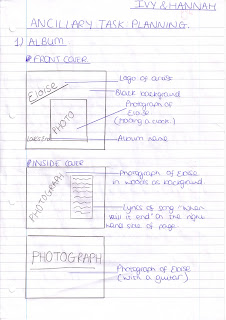 IVY & HANNAH
ANCILLARY TASK PLANNING.
1) ALBUM
FRONT COVER
Logo of artist
Eloise
Black background
Photograph of
Eloise
PHOTO
Album name
INSIDE COVER
Photograph of Eloise
in woods as background
PHOTOGRAPH
Lyrics of song "when
will it end" on the right
hand side of page.
PHOTOGRAPH
Photograph of Eloise
(with a guitar)